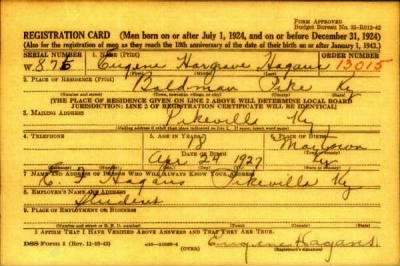 FORM APPROVED
Budget Bureau No. 33-R012-42
REGISTRATION CARD (Men born on or after July 1, 1924, and on or before December 31, 1924)
(Also for the registration of men as they reach the 18th anniversary of the date of their birth on or after January 1, 1943.)
SERIAL NUMBER 1. NAME (Print) ORDER NUMBER
W. 875 Eugene Hargrove Hagans 13015
(First) (Middle) (Last)
2. PLACE OF RESIDENCE (Print)
Pike Ky
(Number and street) (Town, township, village, or city) (County) (State)
[THE PLACE OF RESIDENCE GIVEN ON LINE 2 ABOVE WILL DETERMINE LOCAL BOARD
JURISDICTION; LINE 2 OF REGISTRATION CERTIFICATE WILL BE IDENTICAL]
3. MAILING ADDRESS
Pikeville Ky
[Mailing address if other than place indicated on line 2. If same, insert word same]
4. TELEPHONE 5. AGE IN YEARS 6. PLACE OF BIRTH
18
DATE OF BIRTH
Apr 27 1927 Ky
(Exchange) (Number) (Mo.) (Day) (Yr.) (State or country)
7. NAME AND ADDRESS OF PERSON WHO WILL ALWAYS KNOW YOUR ADDRESS
Hagans Pikeville Ky
8. EMPLOYER'S NAME AND ADDRESS
Student
9. PLACE OF EMPLOYMENT OR BUSINESS
(Number and street or R. F. D. number) (Town) (County) (State)
I AFFIRM THAT I HAVE VERIFIED ABOVE ANSWERS AND THAT THEY ARE TRUE.
DSS Form 1 (OVER) Eugene Hagans
(Registrant's signature)